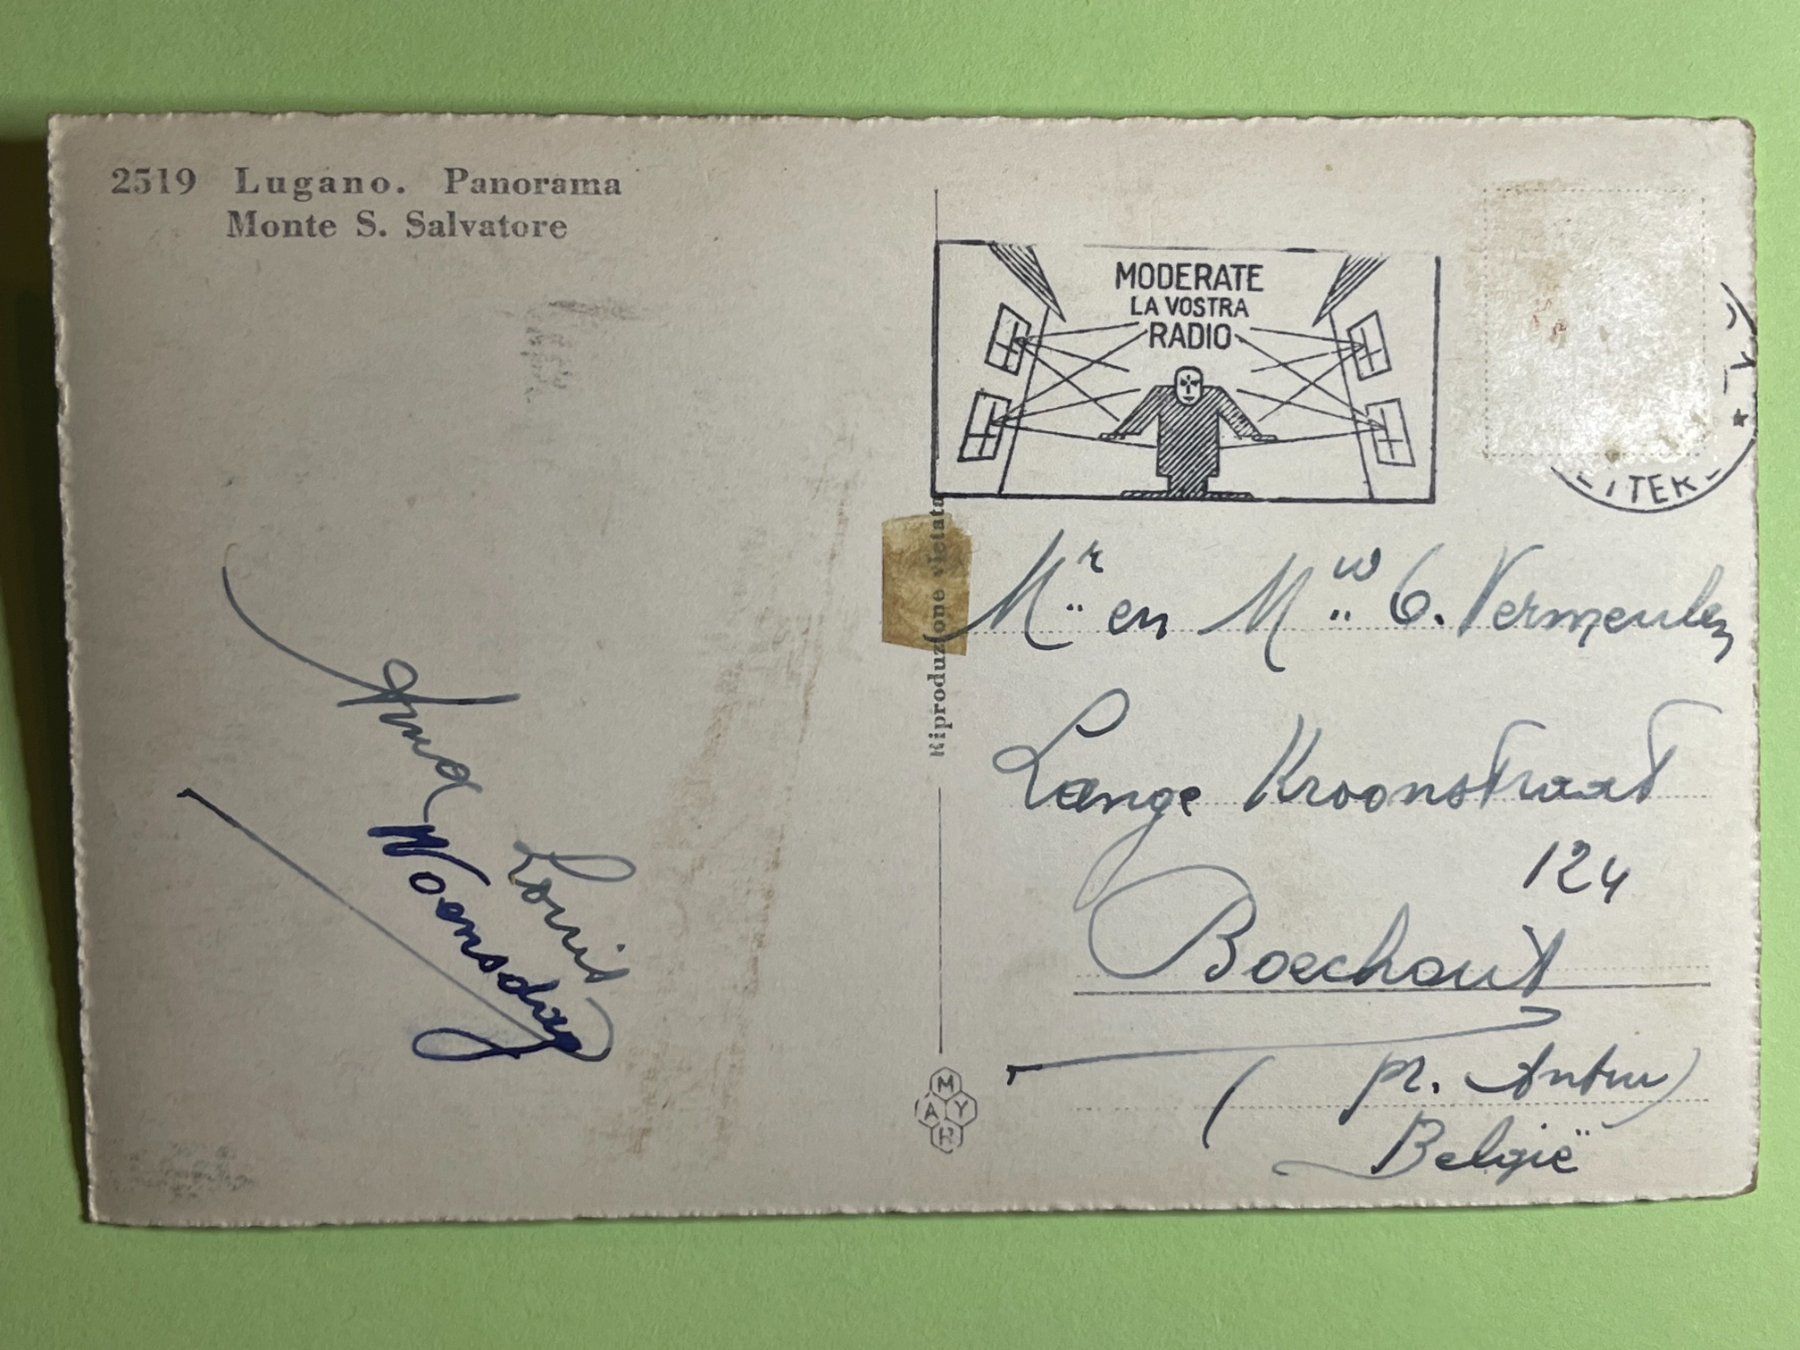 2519 Lugano. Panorama
Monte S. Salvatore
MODERATE
LA VOSTRA
RADIO
Riproduzione vietata
Mr en Mw C. Vermeulen
Lange Kroonstraat
124
Boechout
(pr. Antw)
België
Anna
Louis
Woensdag
MAYR